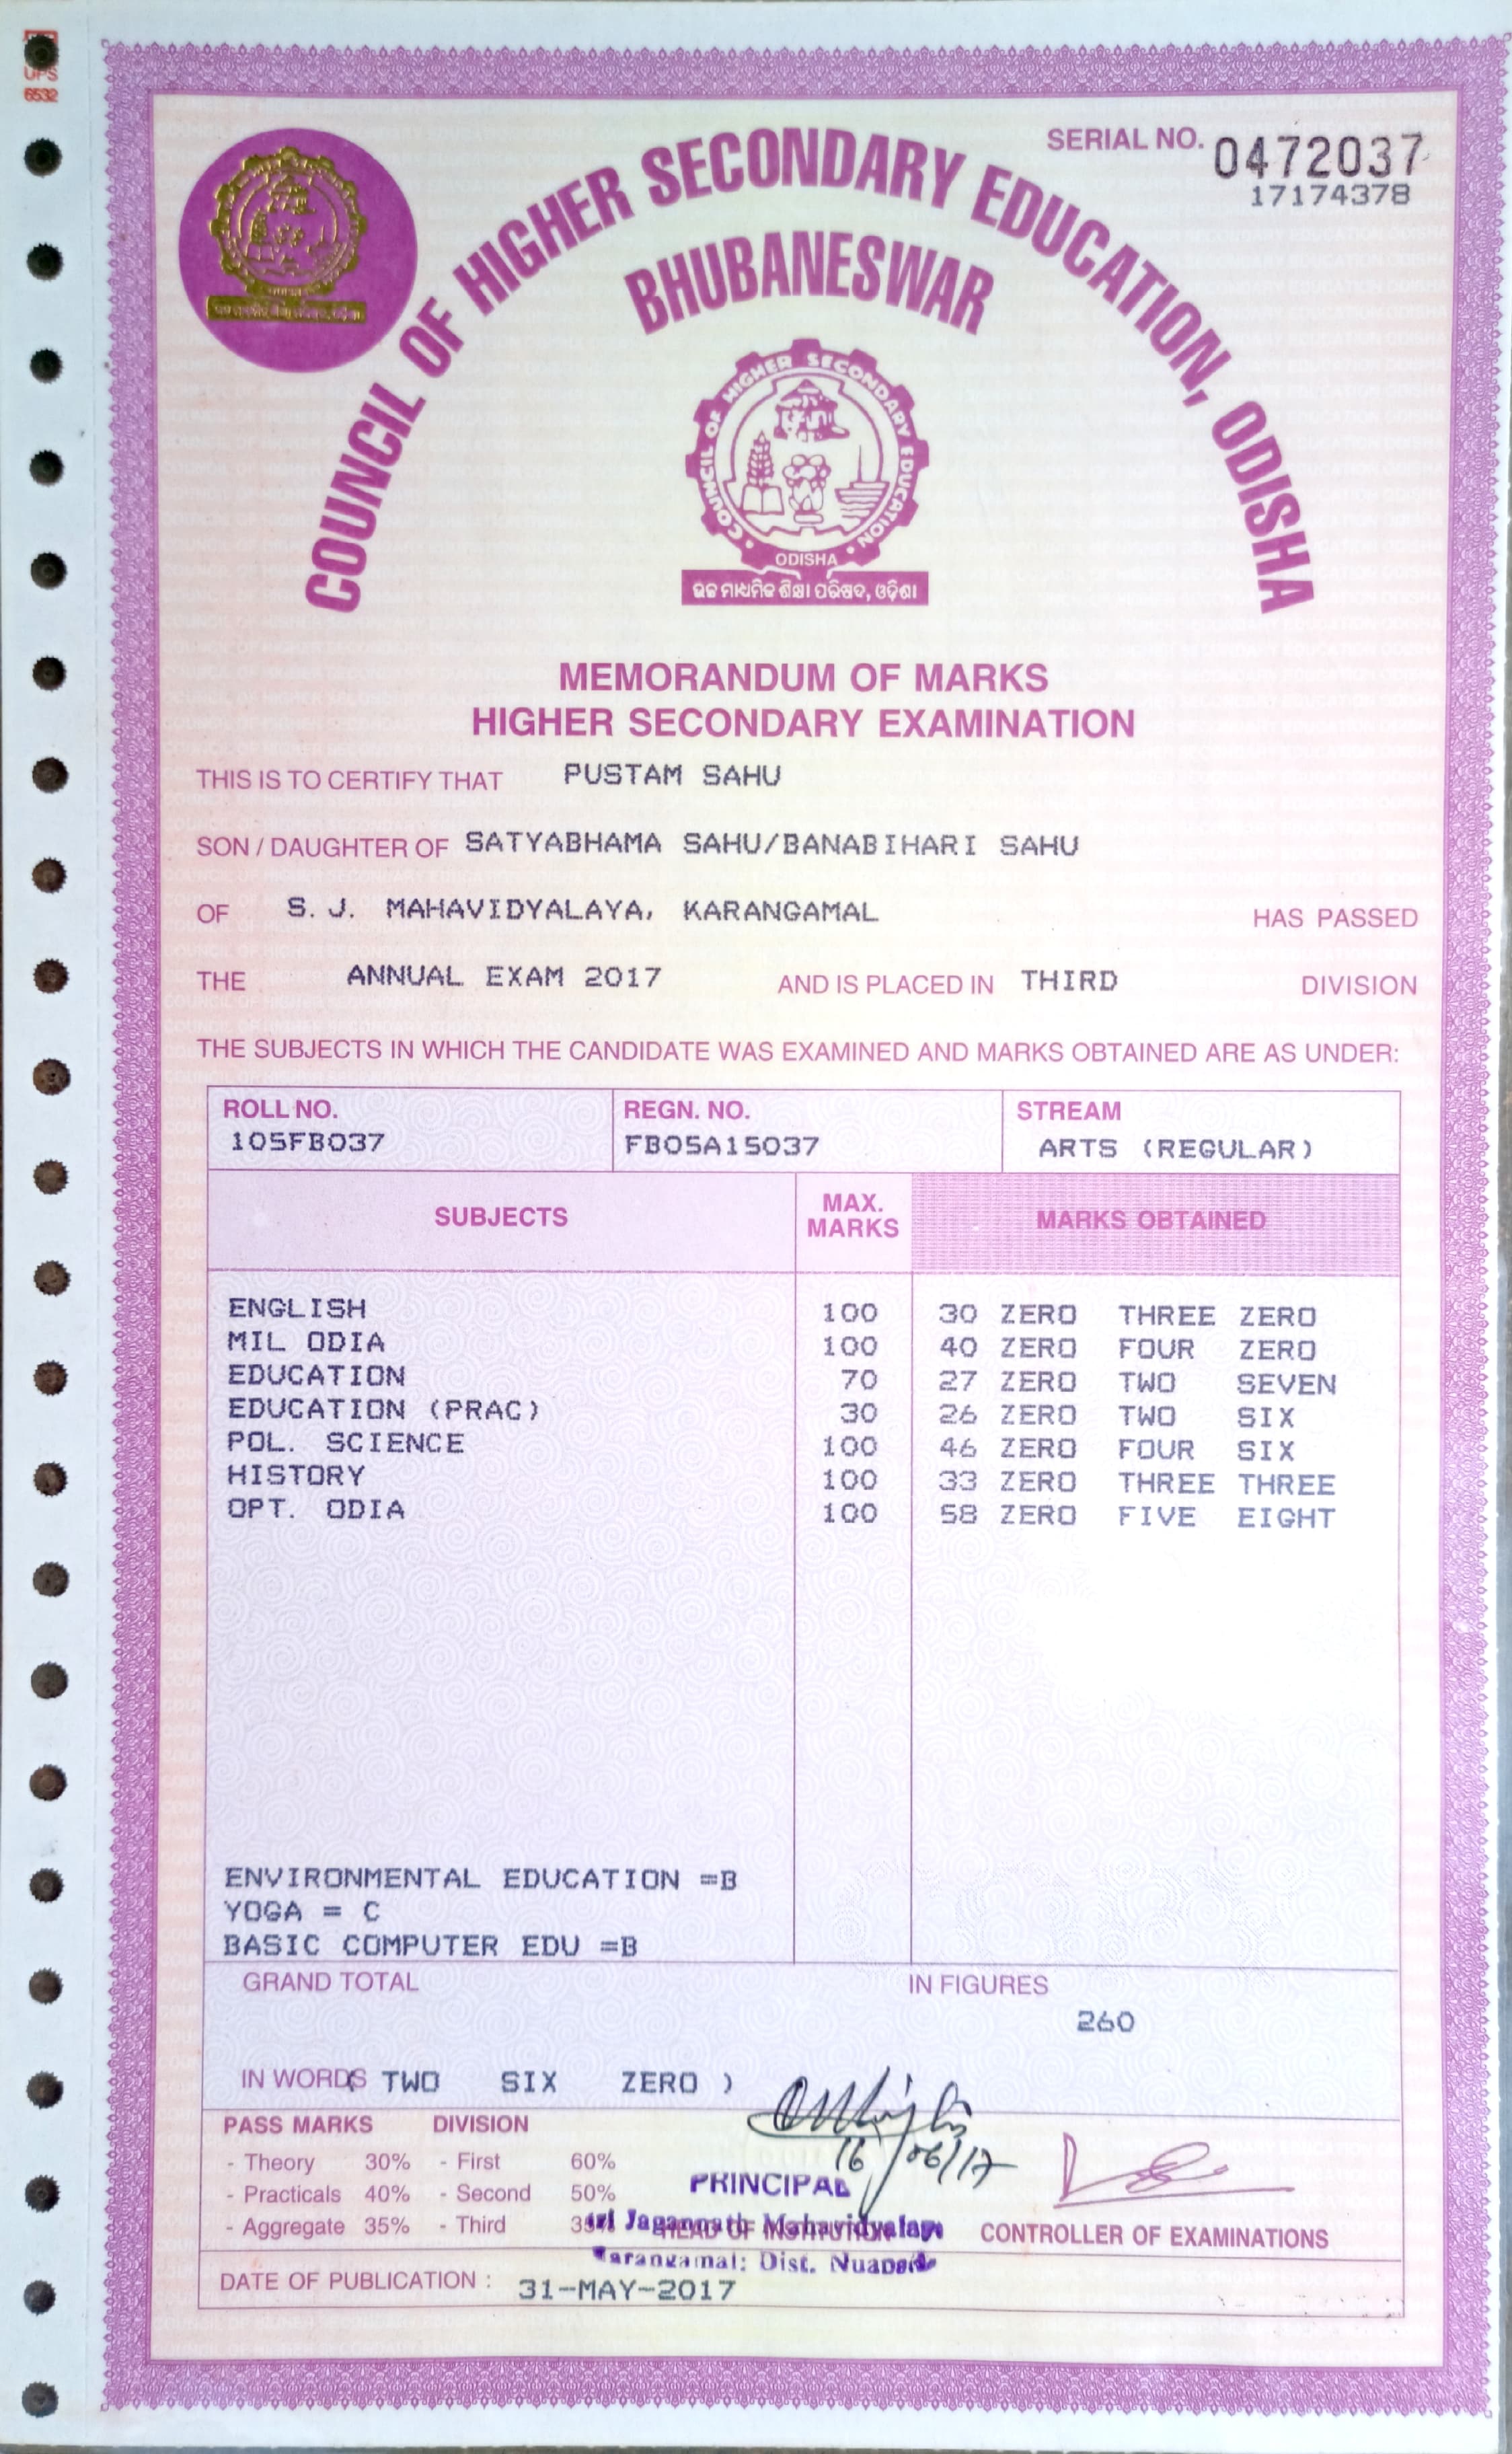 UPS
6532
SERIAL NO. 0472037
17174378
COUNCIL OF HIGHER SECONDARY EDUCATION, ODISHA
BHUBANESWAR
COUNCIL OF HIGHER SECONDARY EDUCATION
ODISHA
ଉଚ୍ଚ ମାଧ୍ୟମିକ ଶିକ୍ଷା ପରିଷଦ, ଓଡ଼ିଶା
MEMORANDUM OF MARKS
HIGHER SECONDARY EXAMINATION
THIS IS TO CERTIFY THAT PUSTAM SAHU
SON / DAUGHTER OF SATYABHAMA SAHU/BANABIHARI SAHU
OF S. J. MAHAVIDYALAYA, KARANGAMAL HAS PASSED
THE ANNUAL EXAM 2017 AND IS PLACED IN THIRD DIVISION
THE SUBJECTS IN WHICH THE CANDIDATE WAS EXAMINED AND MARKS OBTAINED ARE AS UNDER:
ROLL NO. REGN. NO. STREAM
105FB037 FB05A15037 ARTS (REGULAR)
SUBJECTS MAX. MARKS MARKS OBTAINED
ENGLISH 100 30 ZERO THREE ZERO
MIL ODIA 100 40 ZERO FOUR ZERO
EDUCATION 70 27 ZERO TWO SEVEN
EDUCATION (PRAC) 30 26 ZERO TWO SIX
POL. SCIENCE 100 46 ZERO FOUR SIX
HISTORY 100 33 ZERO THREE THREE
OPT. ODIA 100 58 ZERO FIVE EIGHT
ENVIRONMENTAL EDUCATION =B
YOGA = C
BASIC COMPUTER EDU =B
GRAND TOTAL IN FIGURES
260
IN WORDS ( TWO SIX ZERO )
PASS MARKS DIVISION
- Theory 30% - First 60%
- Practicals 40% - Second 50%
- Aggregate 35% - Third 35%
16/06/17
PRINCIPAL
Sri Jagannath Mahavidyalaya
HEAD OF INSTITUTION
Karangamal: Dist. Nuapada
CONTROLLER OF EXAMINATIONS
DATE OF PUBLICATION : 31-MAY-2017